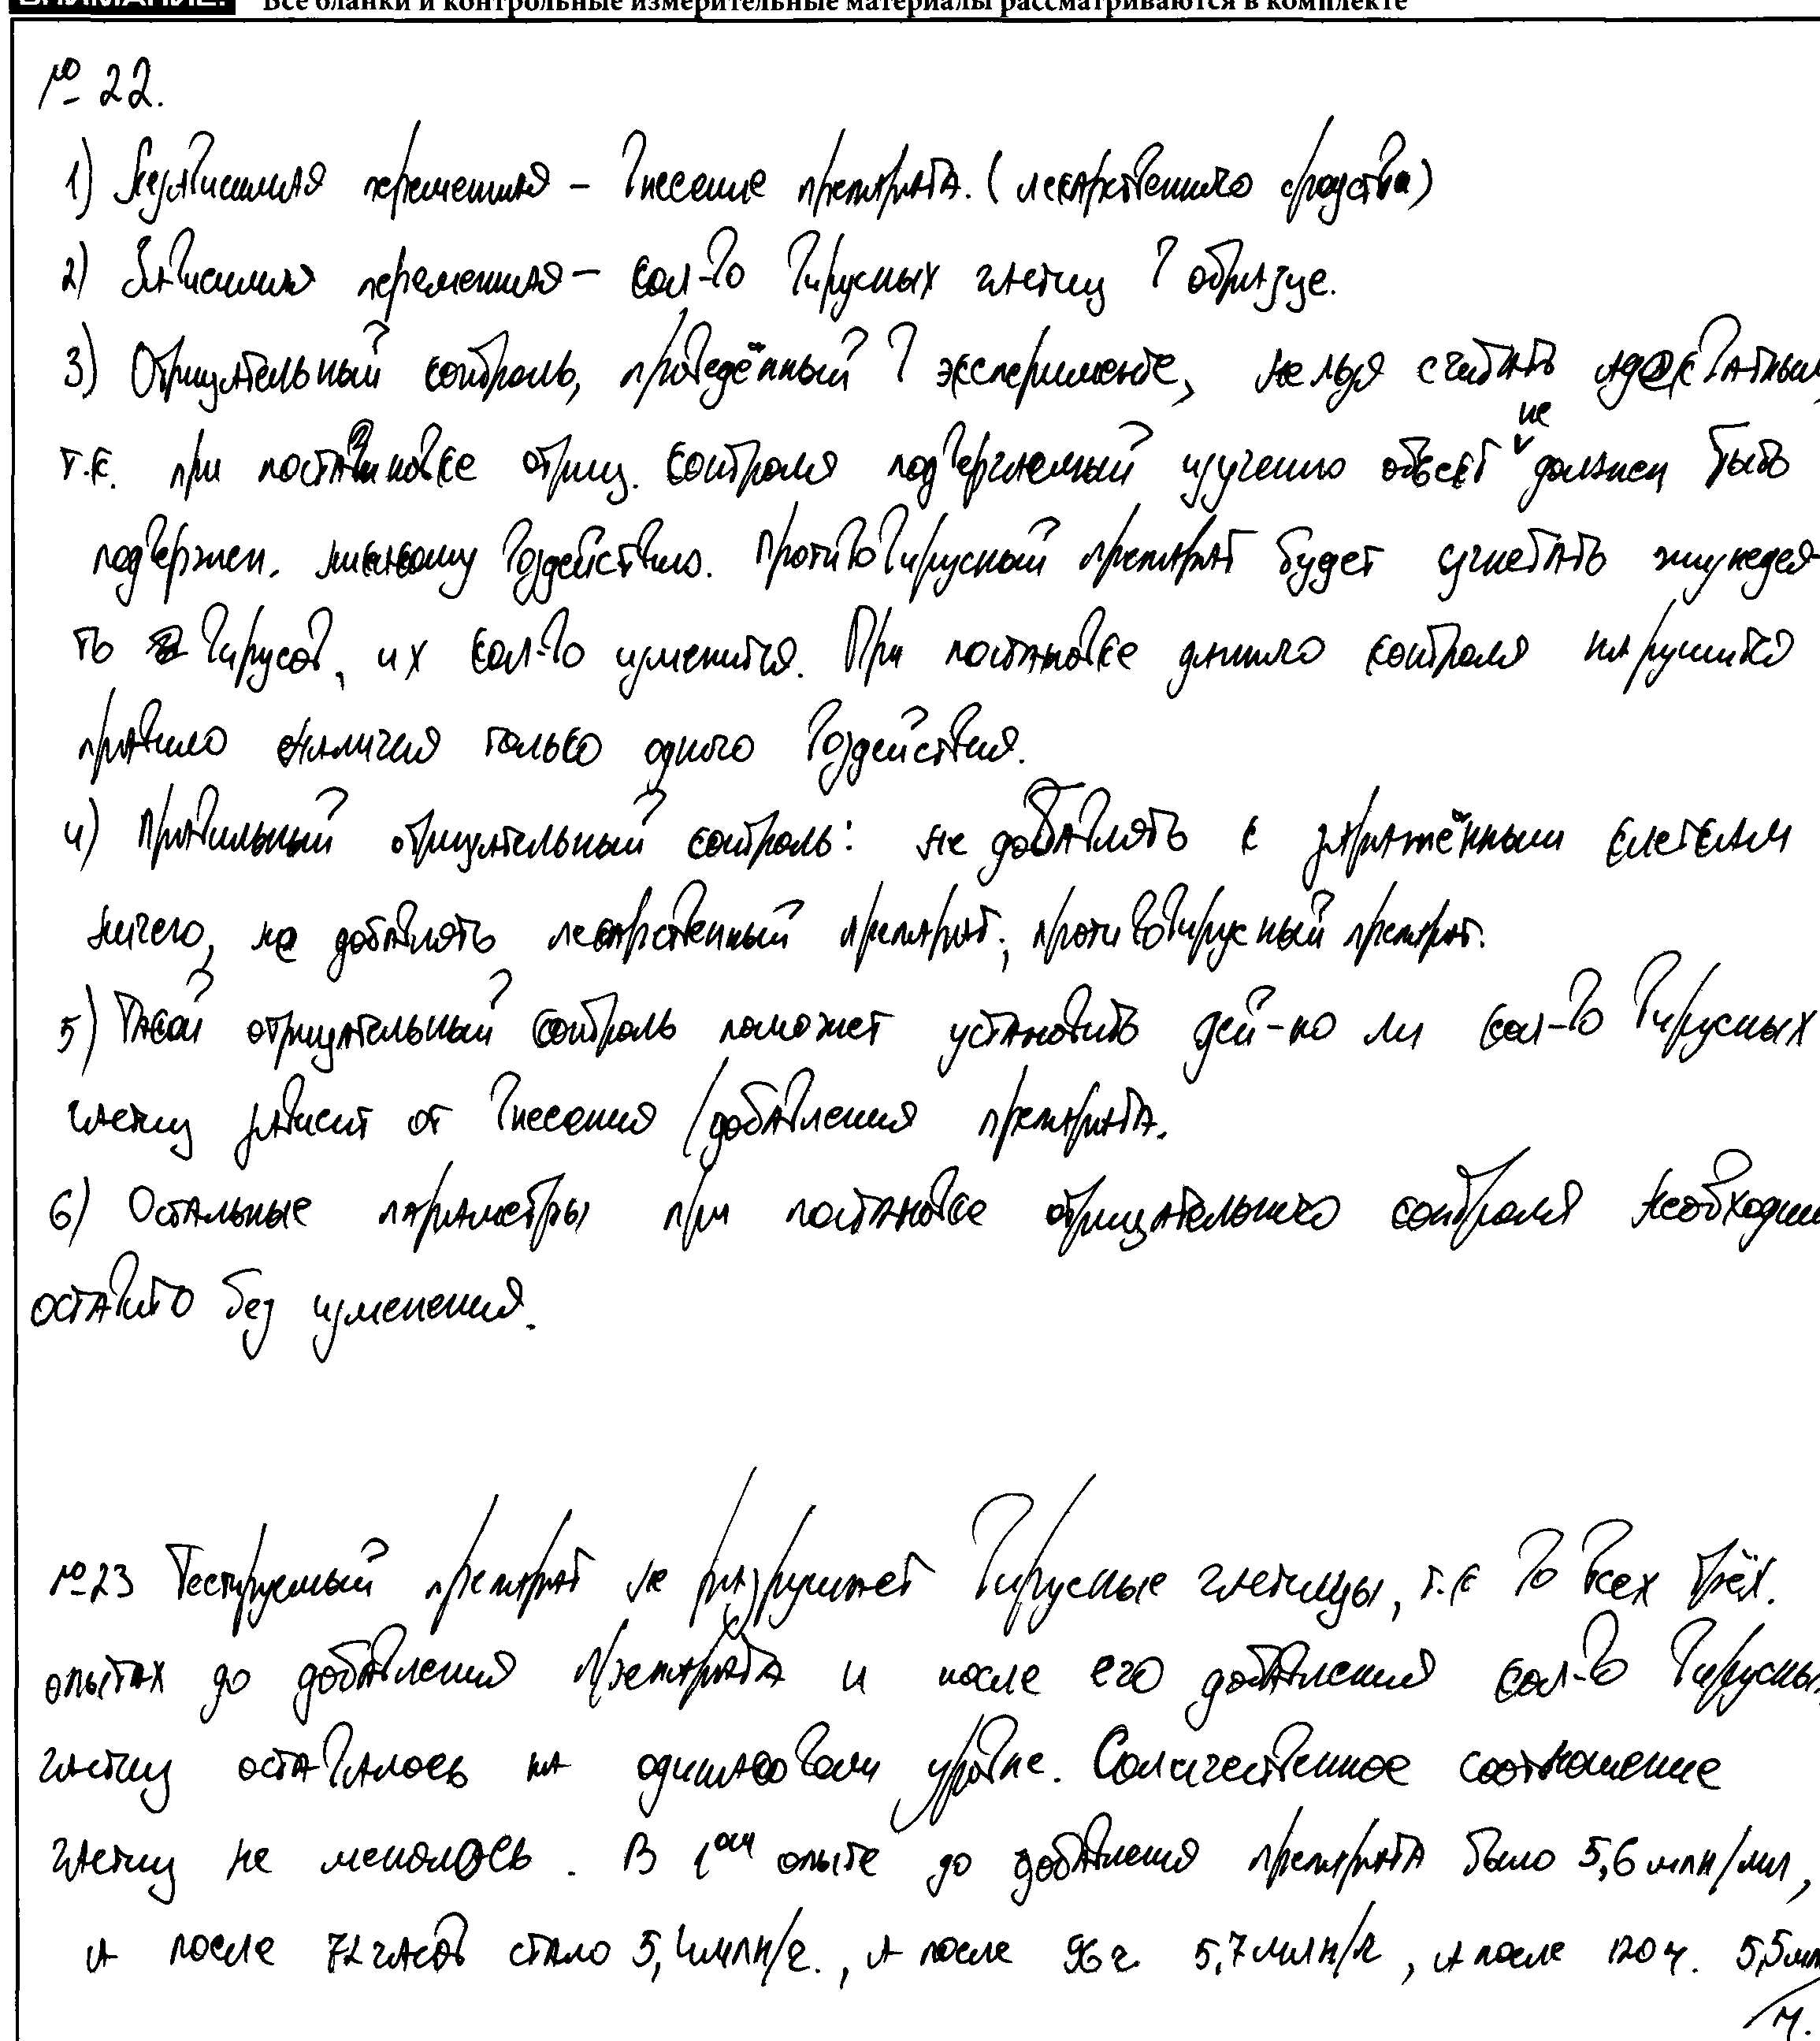 ВНИМАНИЕ! Все бланки и контрольные измерительные материалы рассматриваются в комплекте
№ 22.
1) Независимая переменная – внесение препарата. (лекарственного средства)
2) Зависимая переменная – кол-во вирусных частиц в образце.
3) Отрицательный контроль, проведённый в эксперименте, нельзя считать адекватным,
т.к. при постановке отриц. контроля подвергаемый изучению объект не должен быть
подвержен. никакому воздействию. Противовирусный препарат будет угнетать жизнедея-
ть вирусов, их кол-во изменится. При постановке данного контроля нарушится
правило наличия только одного воздействия.
4) Правильный отрицательный контроль: не добавлять к заражённым клеткам
ничего, не добавлять лекарственный препарат, противовирусный препарат.
5) Такой отрицательный контроль поможет установить дей-но ли кол-во вирусных
частиц зависит от внесения / добавления препарата.
6) Остальные параметры при постановке отрицательного контроля необходим
оставить без изменения.
№23 Тестируемый препарат не разрушает вирусные частицы, т.к во всех трёх.
опытах до добавления препарата и после его добавления кол-во вирусны
частиц оставалось на одинаковом уровне. Количественное соотношение
частиц не менялось. В 1ом опыте до добавления препарата было 5,6 млн/мл,
а после 72 часов стало 5,4млн/ч., а после 96 ч. 5,7 млн/ч, а после 120 ч. 5,5млн
/ч.